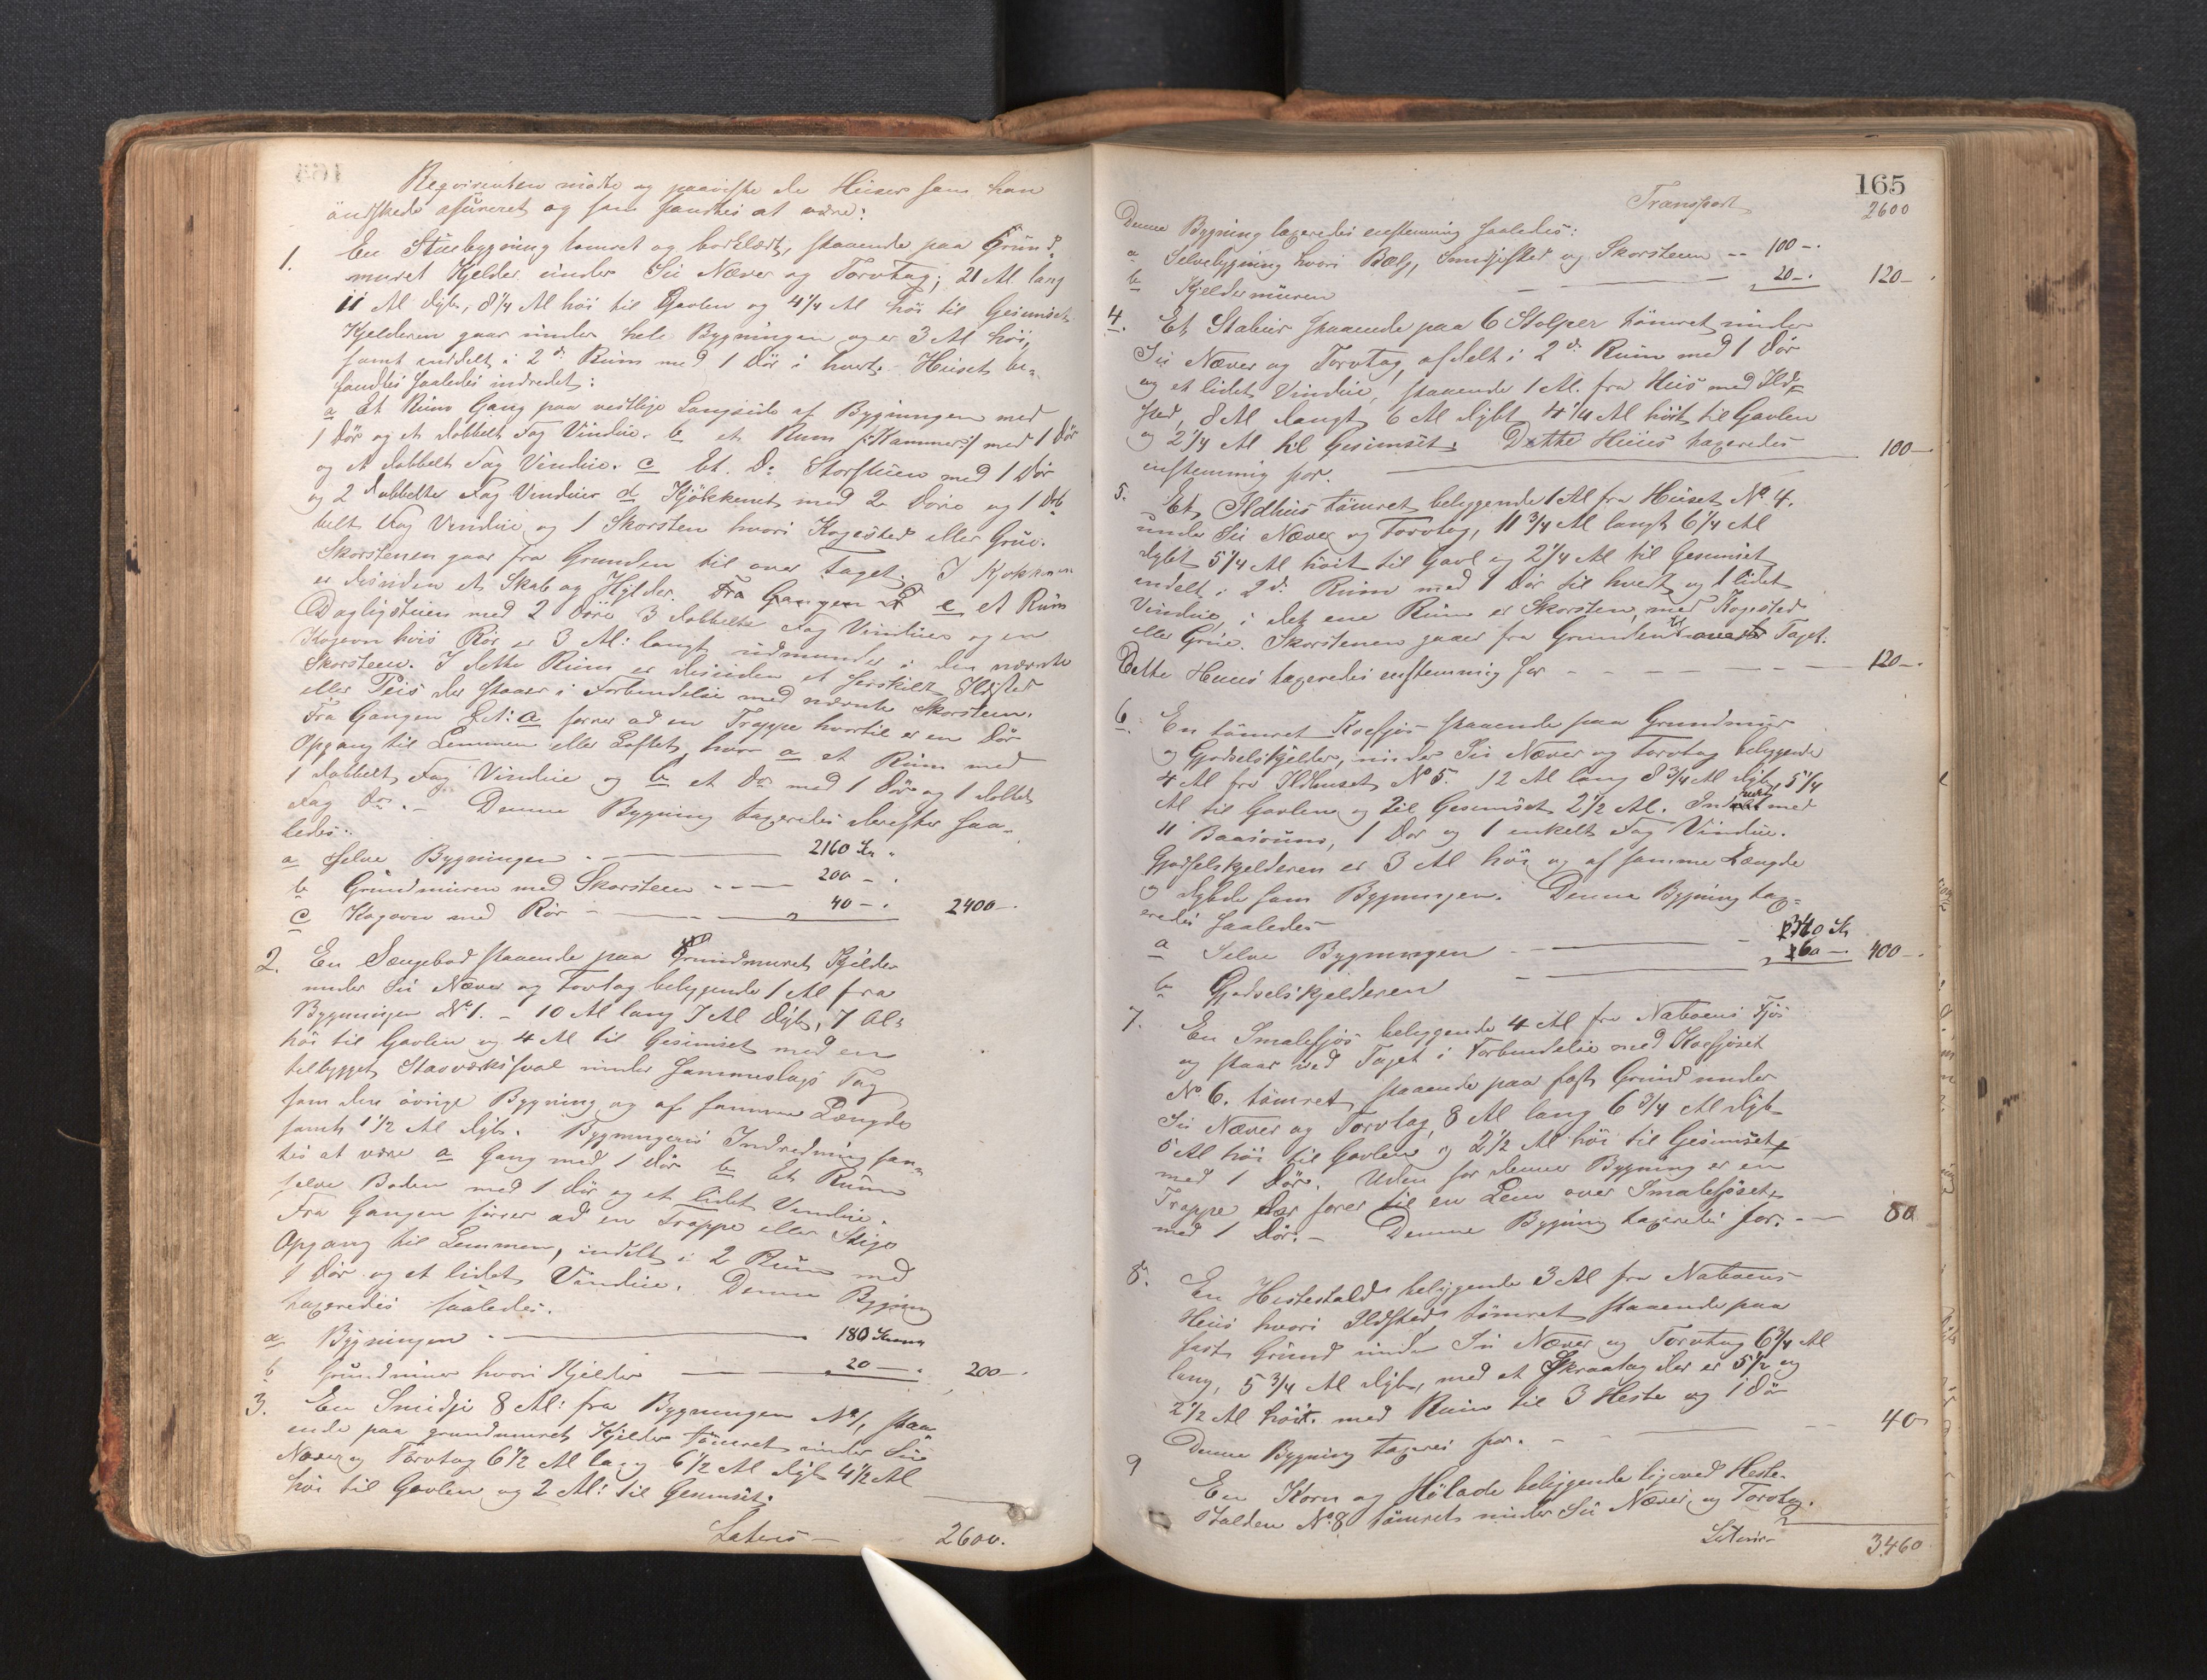 Reqvirenten mødte og paaviste de Huuse som han
øndskede asureret og som fandtes at være:
1. En Stuebygning tømret og bordklædt, staaende paa Grund-
muret Kjelder under Su Næver og Torvtag; 21 Al lang
11 Al dyb, 8 1/4 Al høi til Gavlen og 4 1/4 Al høi til Gesimset
Kjelderen gaar under hele Bygningen og er 3 Al høi,
samt inddelt i 2de Rum med 1 Dør i hvert. Huset be-
fandtes saaledes indredet:
a Et Rum Gang paa vestlige Langside af Bygningen med
1 Dør og et dobbelt Fag Vindue. b et Rum /:Kammers:/ med 1 Dør
og et dobbelt Fag Vindue. c Et Do Storstuen med 1 Dør
og 2 dobbelte Fag Vinduer d Kjøkkenet med 2 Døre og 1 Dob
belt Fag Vindue og 1 Skorsten hvori Kogested eller Grue.
Skorstenen gaar fra Grunden til over Taget. I Kjøkkenen
er desuden et Skab og Hylder. Fra Gangen e et Rum
Dagligstuen med 2 Døre 3 dobbelte Fag Vinduer og en
Kogeovn hvis Rør er 3 Al: langt udmunder i den nævnte
Skorsteen. I dette Rum er desuden et særskilt Ildsted
eller Peis der staaer i Forbindelse med nævnte Skorsteen.
Fra Gangen Lit: a fører ad en Trappe hvortil er en Dør
Opgang til Lemmen eller Loftet, hvor a et Rum med
1 dobbelt Fag Vindue og b et Do med 1 Dør og 1 dobbelt
Fag Do. – Denne Bygning taxeredes derefter saa-
ledes:
a Selve Bygningen 2160 Kr „
b Grundmuren med Skorsteen 200 – .
c Kogeovn med Rør 40 – . 2400 – .
2. En Sængebod staaende paa Grundmuret Kjelder
under Su Næver og Torvtag beliggende 1 Al fra
Bygningen No 1. – 10 Al lang 7 Al dyb, 7 Al:
høi til Gavlen og 4 Al til Gesimset med en
tilbygget Stavværksval under sammeslags Tag
som den øvrige Bygning og af samme Længde
samt 1 1/2 Al dyb. Bygningens Indredning fan-
tes at være a Gang med 1 Dør b Et Rum
selve Boden med 1 Dør og et lidet Vindue.
Fra Gangen fører ad en Trappe eller Stige
Opgang til Lemmen, indelt i 2 Rum med
1 Dør og et lidet Vindue. Denne Bygning
taxeredes saaledes.
a Bygningen 180 Kroner
b Grundmur hvori Kjelder 20 – . 200 – .
3. En Smidje 8 Al: fra Bygningen No 1, staa-
ende paa grundmuret Kjelder tømret under Su
Næver og Torvtag 6 1/2 Al lang 6 1/2 Al dyb 4 1/2 Al
høi til Gavlen og 2 Al: til Gesimset.
Lateris – 2600.
165
Transport 2600
Denne Bygning taxeredes enstemmig saaledes:
a Selvebygning hvori Bælg, Smidjested og Skorsteen -- 100 – .
b Kjeldermuren 20 – . 120 – .
4. Et Stabur staaende paa 6 Stolper tømret under
Su Næver og Torvtag, afdelt i 2de Rum med 1 Dør
og et lidet Vindue, staaende 1 Al. fra Huus med Ild-
sted, 8 Al langt 6 Al dybt 4 1/4 Al høit til Gavlen
og 2 1/4 Al til Gesimset. Dette Huus taxeredes
enstemmig for. 100 –
5. Et Ildhus tømret beliggende 1 Al fra Huset No 4.
under Su Næver og Torvtag, 11 3/4 Al langt 6 1/4 Al
dybt 5 1/4 Al høit til Gavl og 2 1/4 Al til Gesimset
indelt i 2de Rum med 1 Dør til hvert og 1 lidet
Vindue, i det ene Rum er Skorsten med Kogested
eller Grue. Skorstenen gaaer fra Grunden til over Taget.
Dette Huus taxeredes enstemmig for 120 – .
6. En tømret Koefjøs staaende paa Grundmur
og Gjødselskjelder, under Su Næver og Torvtag beliggende
4 Al fra Ildhuset No 5. 12 Al lang 8 3/4 Al dyb, 5 1/4
Al til Gavlen og til Gesimset 2 1/2 Al. Indredt med
11 Baasrum, 1 Dør og 1 enkelt Fag Vindue.
Gjødselskjelderen er 3 Al høi og af samme Længde
og dybde som Bygningen. Denne Bygning tax-
eredes saaledes
a Selve Bygningen 340 Kr
b Gjødselskjelderen 60 – . 400 – .
7. En Smalefjøs beliggende 4 Al fra Naboens Fjøs
og staar ved Taget i Forbindelse med Koefjøset
No 6. tømret staaende paa fast Grund under
Su Næver og Torvtag, 8 Al lang 6 3/4 Al dyb
5 Al høi til Gavlen og 2 1/2 Al høi til Gesimset
med 1 Dør. Uden for denne Bygning er en
Trappe der fører til en Lem over Smalefjøset
med 1 Dør. – Denne Bygning taxeredes for. 80
8. En Hestestald beliggende 3 Al fra Naboens
Huus hvori Ildsted, tømret staaende paa
fast Grund under Su Næver og Torvtag 6 3/4 Al
lang, 5 3/4 Al dyb, med et Skraatag der er 5 1/2 og
2 1/2 Al høit. med Rum til 3 Heste og 1 Dør
Denne Bygning taxeres for. 40
9 En Korn og Hølade beliggende ligeved Heste-
stalden No 8 tømret under Su Næver og Torvtag.
Lateris 3460